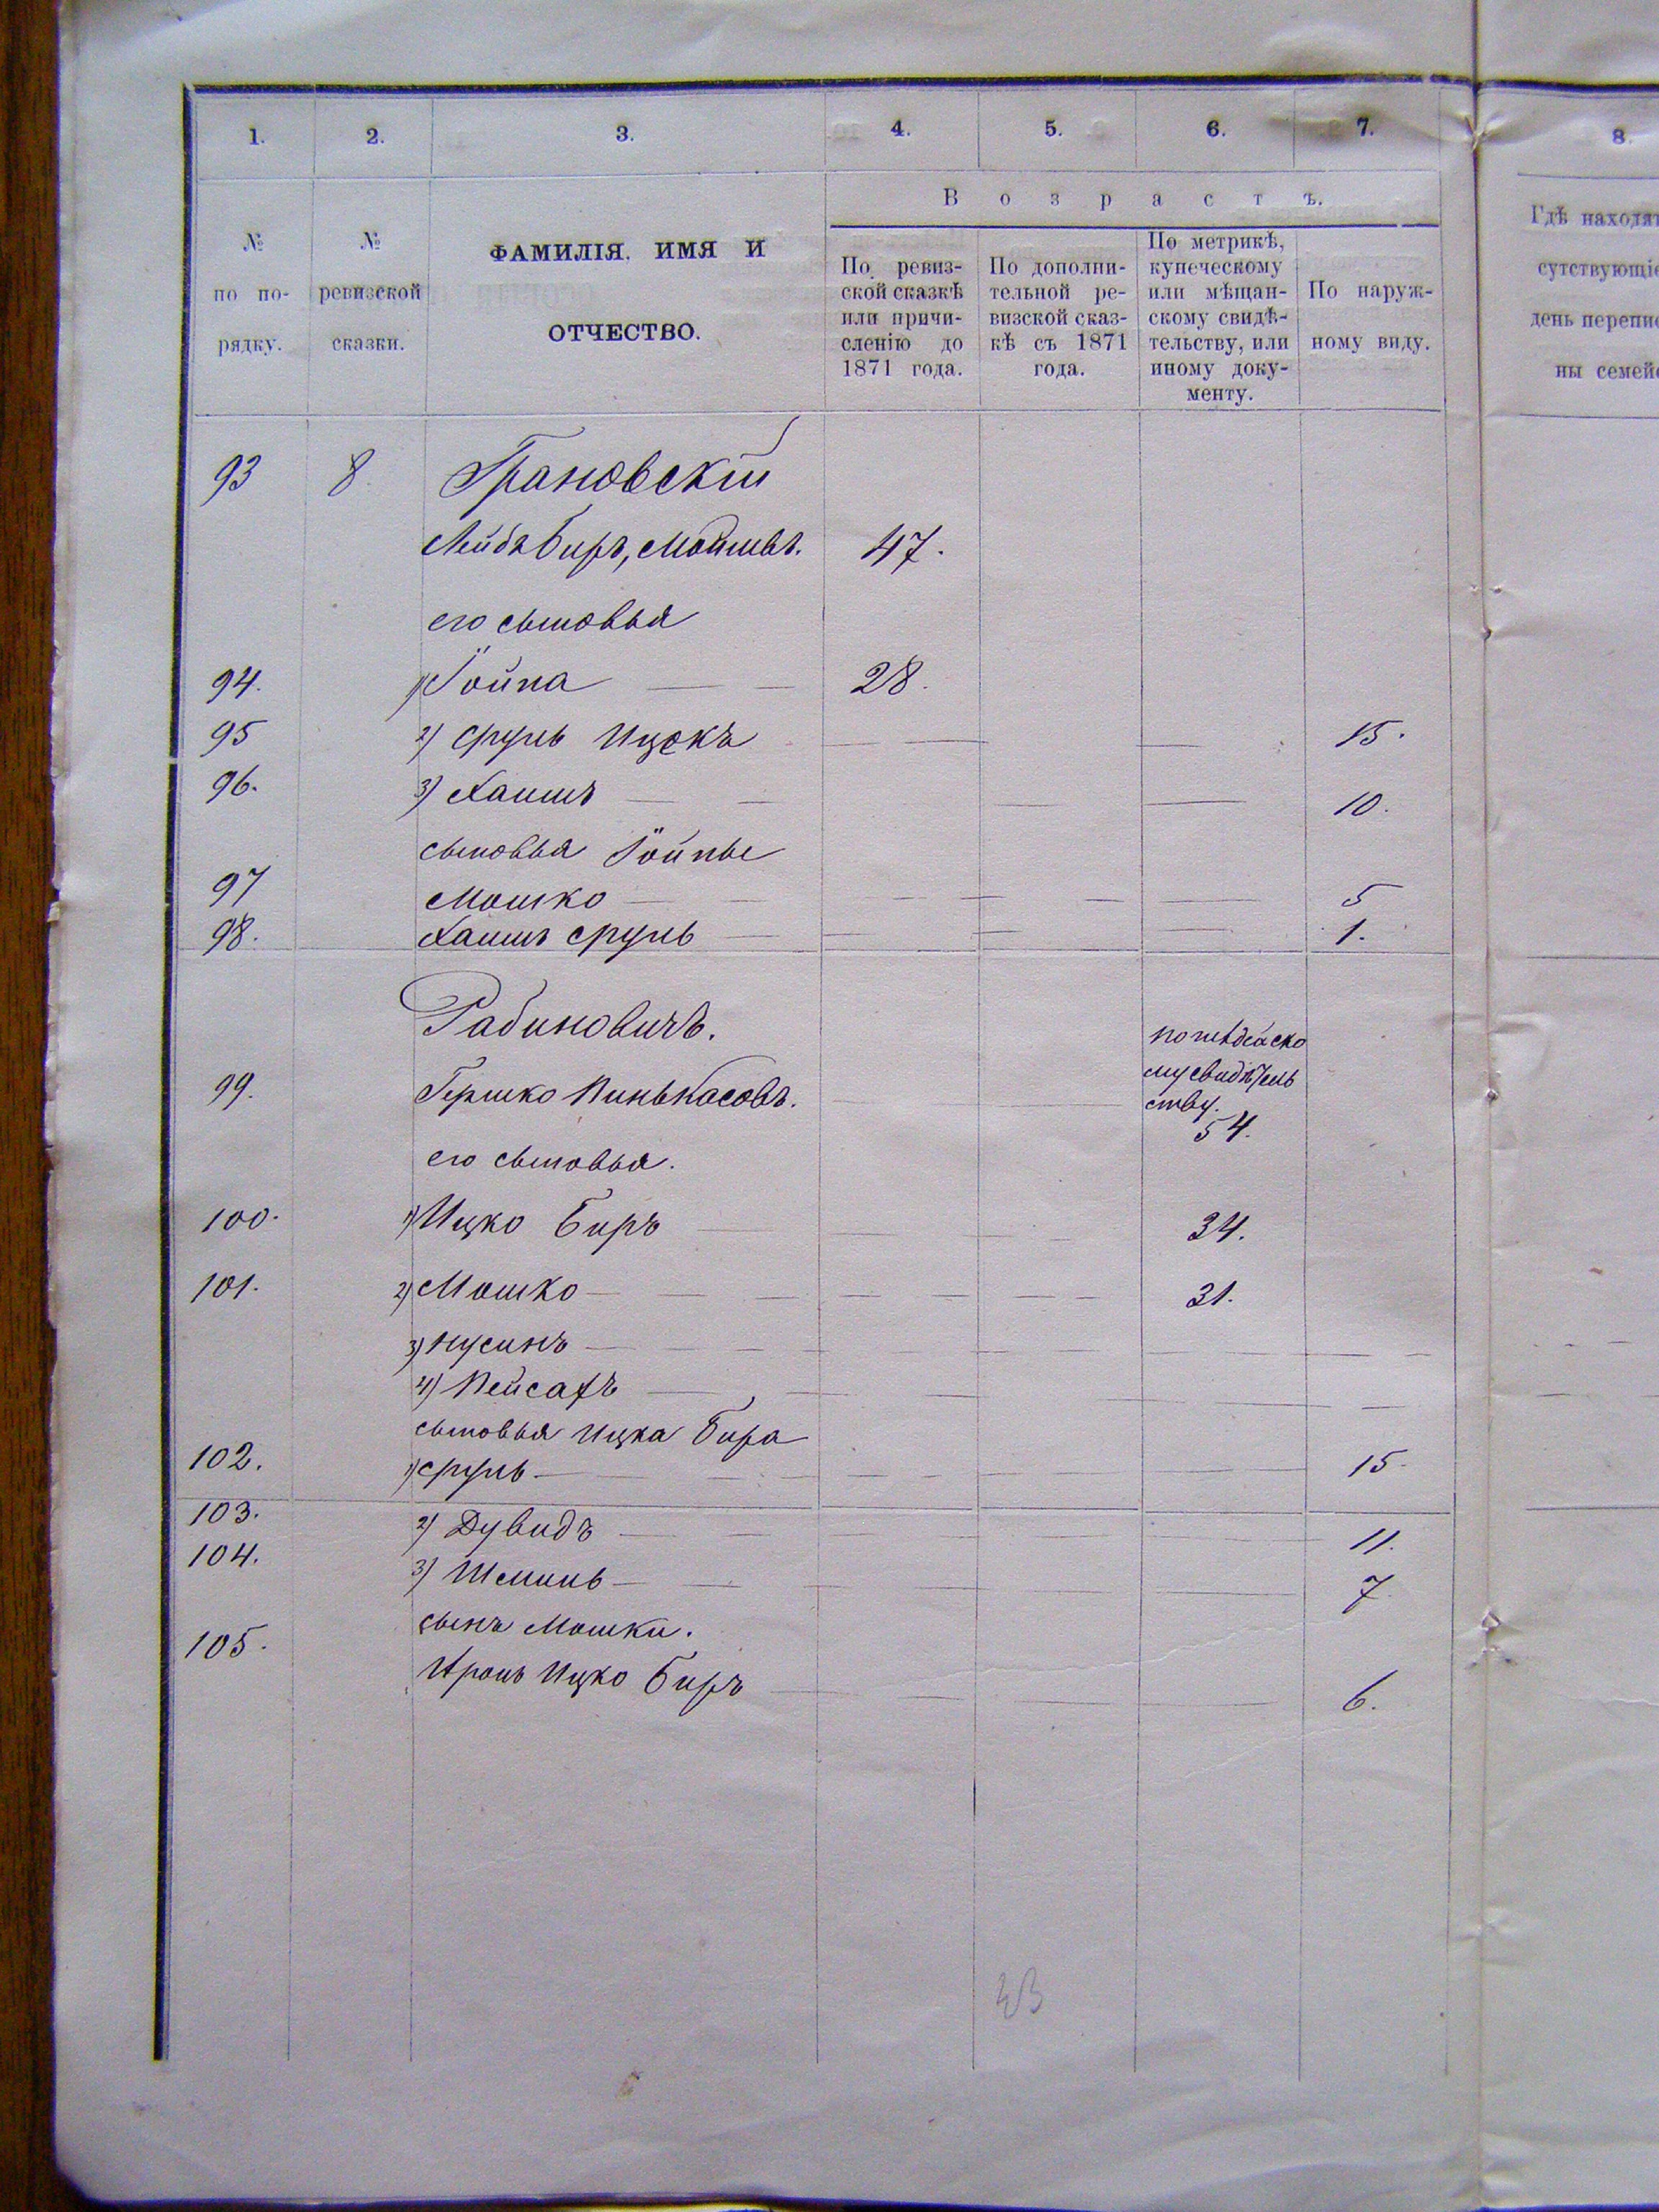 1. 2. 3. 4. 5. 6. 7. 8.
№ по порядку.
№ ревизской сказки.
ФАМИЛІЯ, ИМЯ И
ОТЧЕСТВО.
В о з р а с т ъ.
По ревиз-
ской сказкѣ
или причи-
сленію до
1871 года.
По дополни-
тельной ре-
визской сказ-
кѣ съ 1871
года.
По метрикѣ,
купеческому
или мѣщан-
скому свидѣ-
тельству, или
иному доку-
менту.
По наруж-
ному виду.
Гдѣ находят
сутствующіе
день перепис
ны семейс
93 8. Грановскій
Лейба Биръ, Мошковъ. 47.
его сыновья
94. 1) Іойна 28.
95 2) Сруль Ицекъ 15.
96. 3) Хаимъ 10.
сыновья Іойны
97 Мошко 5
98. Хаимъ Сруль 1.
Рабиновичъ.
99. Гершко Пинькасовъ.
му свидѣтель
ству.
54.
его сыновья.
100. 1) Ицко Биръ 34.
101. 2) Мошко 31.
3) Нусинъ
4) Пейсахъ
сыновья Ицка Бира
102. 1) Сруль 15.
103. 2) Дувидъ 11.
104. 3) Шмиль 7
сынъ Мошки.
105. Аронъ Ицко Биръ 6.